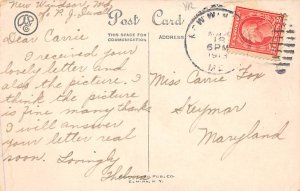 New Windsor, Md
Post Card
THIS SPACE FOR
CORRESPONDENCE
ADDRESS
6 PM
MD.
Dear Carrie
I received your
lovely letter and
also the picture. I
think the picture
is fine many thanks
I will answer
your letter real
soon. Lovingly
Thelma
Miss Carrie Fox
Keymar
Maryland
PUB. CO.
ELMIRA, N.Y.